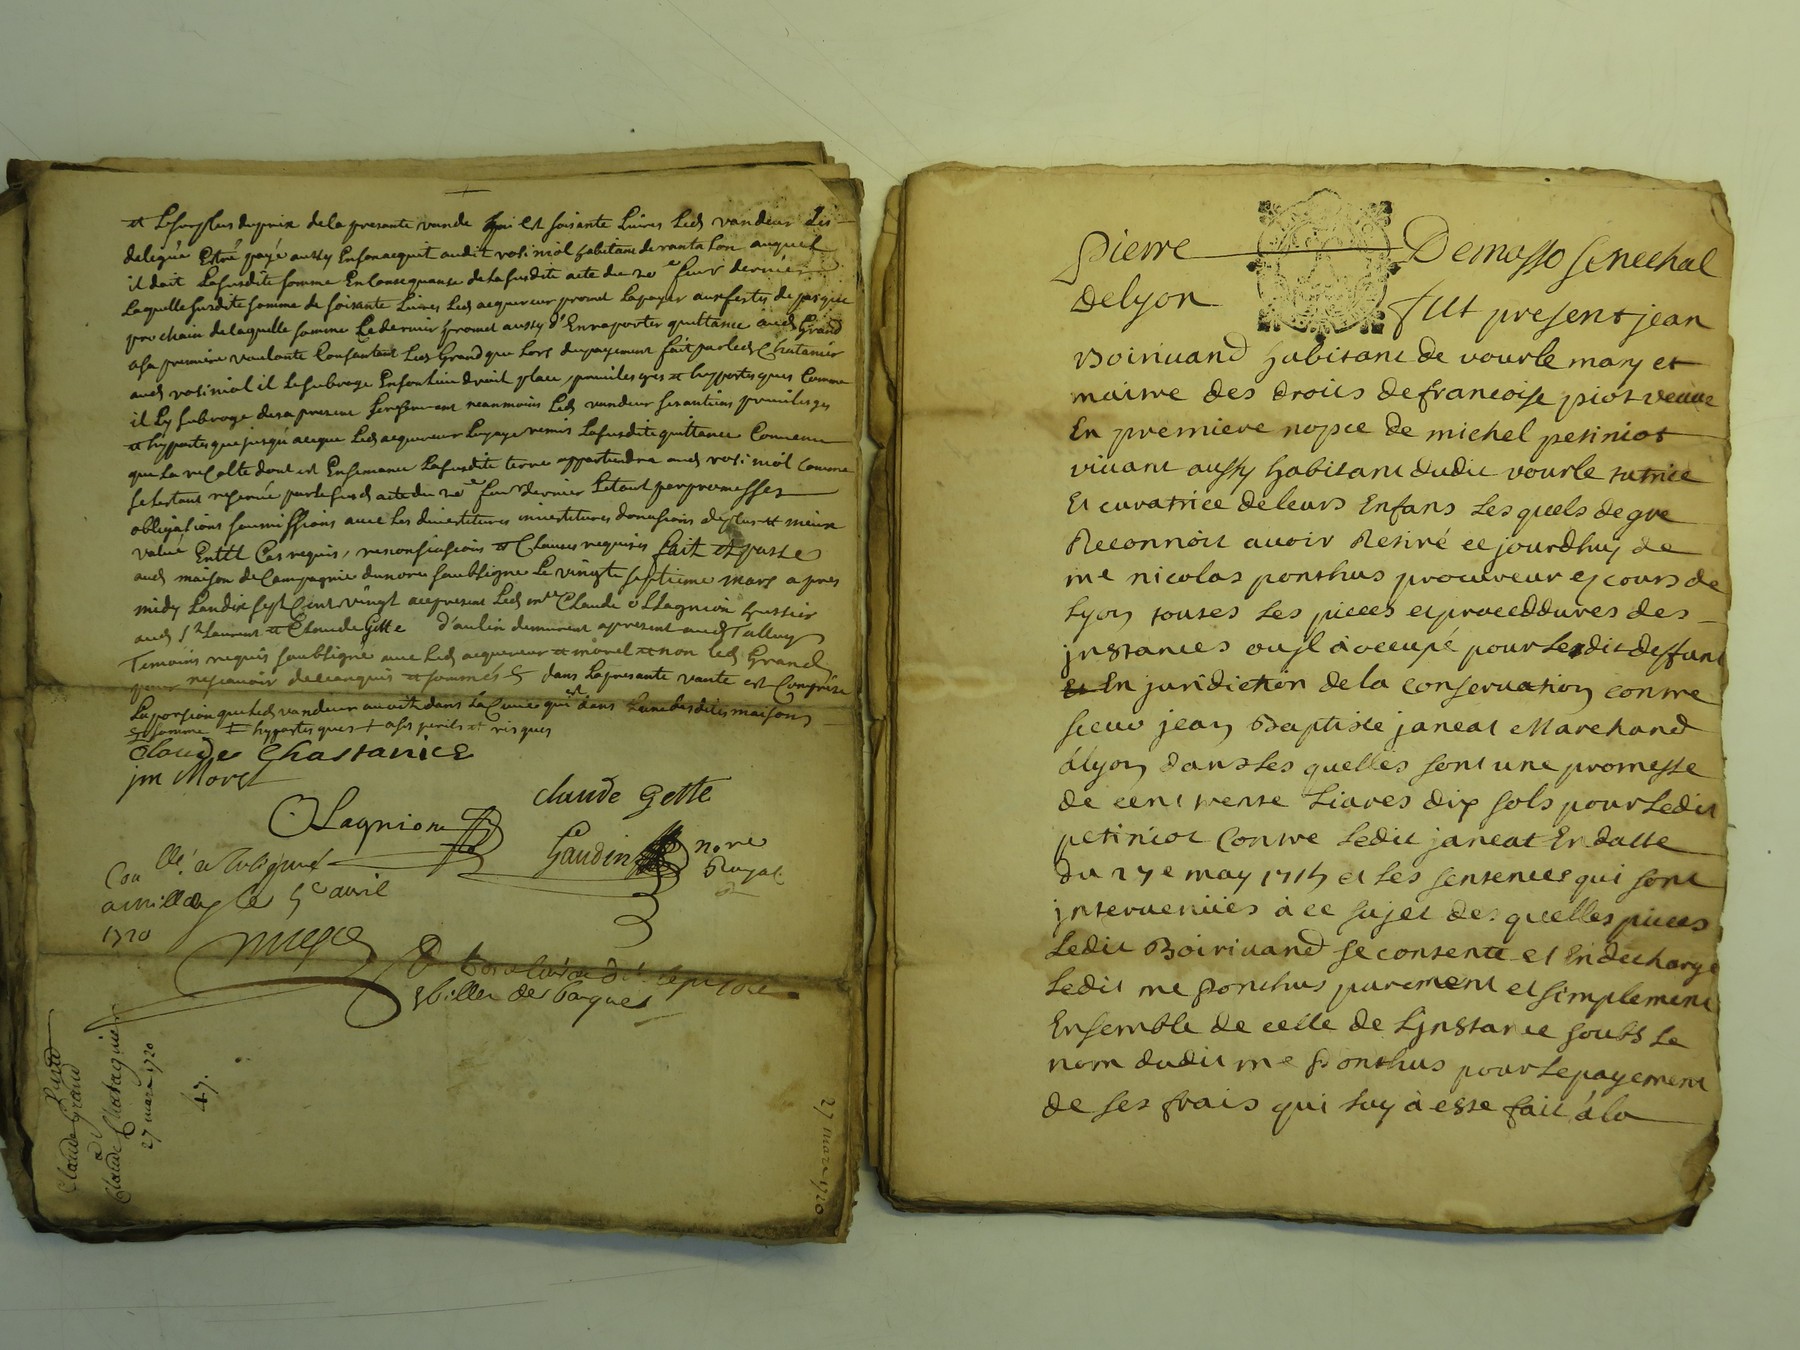 et Lesurplus du prix de la presente vande qui est soisante Livres Led vandeur Les
delegue Estre payé aussy Ensonacquit audit rosiniol habitant de rantalon auquel
il doit Lasusdite somme En Consequanse de la susdite acte du 20e feuvr dernier
Laquelle susdite somme de soisante Livres Led acquereur promet Lapayer aux festes de pasque
prochain de laquelle somme Le dernier promet aussy d'En raporter quittance aud Grand
asa premiere vaulante Consantant Led Grand que Lors du payement fait par led Chatanier
aud rosiniol il Le subroge En son Lieu droit place, privileges et hyppoteques Comme
il Ly subroge des a present se reservant neanmoins Led vandeur ses antiens privileges
et hyppoteques jusqu'acque Led acquereur Luy aye remis Lasusdite quittance Convenu
que La recolte dont est Ensemancé Lasusdite terre appartiendra aud rosiniol Comme
se Lestant reservée par le susd acte du 20e feuvr dernier Le tout par promesses
obligations soumissions avec Les devestitures investitures donnations de plus et mieux
value Entel Cas requis, renonsiasions et Clauses requises fait et passé
aud maison de Campagnie du nore soubsigné Le vingt septieme mars apres
midy Landix sept Cent vingt acepresent Led mre Claude o Lagnion hussier
aud St Laurent et Claude Gette d'aulin demeurant apresent aud Talluy
Temoins requis soubsigné avec Led acquereur et morel et non led Grand
pour ne scavoir de ce enquis et sommés dans Lapresante vante est Comprise
La porsion que Led vandeur avoit dans La Cuve qui est dans Lune des dites maisons
somme hypoteques + a ses perils et risques
Claude Chastanier
jm Morel
claude Gette
OLagnion
Gaudin nore Royal
Con llé. a Soligneu
a millery le 5e avril
1720
billes des Parques
Vente
Claude Grand
a
Claude Chatagnier
27 mars 1720
47.
27 mars 1720
Pierre Demasso senechal
Delyon fut present jean
Boirivand habitant de vourle mary et
maitre des droits de francoise piot veuve
En premiere nopce de michel petiniot
vivant aussy habitant dudit vourle tutrice
Et curatrice de leurs Enfans Lesquels de gre
Reconnoit avoir Retiré ce jourdhuy de
me nicolas ponthus procureur ej cours de
Lyon toutes Les pieces et proceddures des
jnstances ou jl à occupé pour Ledit deffunt
En juridiction de la conservation contre
sieur jean Baptiste janeat Marchand
àlyon dans Les quelles sont une promesse
de cent trente Livres dix sols pour Ledit
petiniot Contre Ledit janeat En datte
du 27e may 1715 et Les sentences qui sont
jntervenües à ce sujet des quelles pieces
Ledit Boirivand se contente et En decharge
Ledit me Ponthus purement et simplement
Ensemble de celle de Ljnstance soubs Le
nom dudit me Ponthus pour Le payement
de ses frais qui Luy à esté fait à la